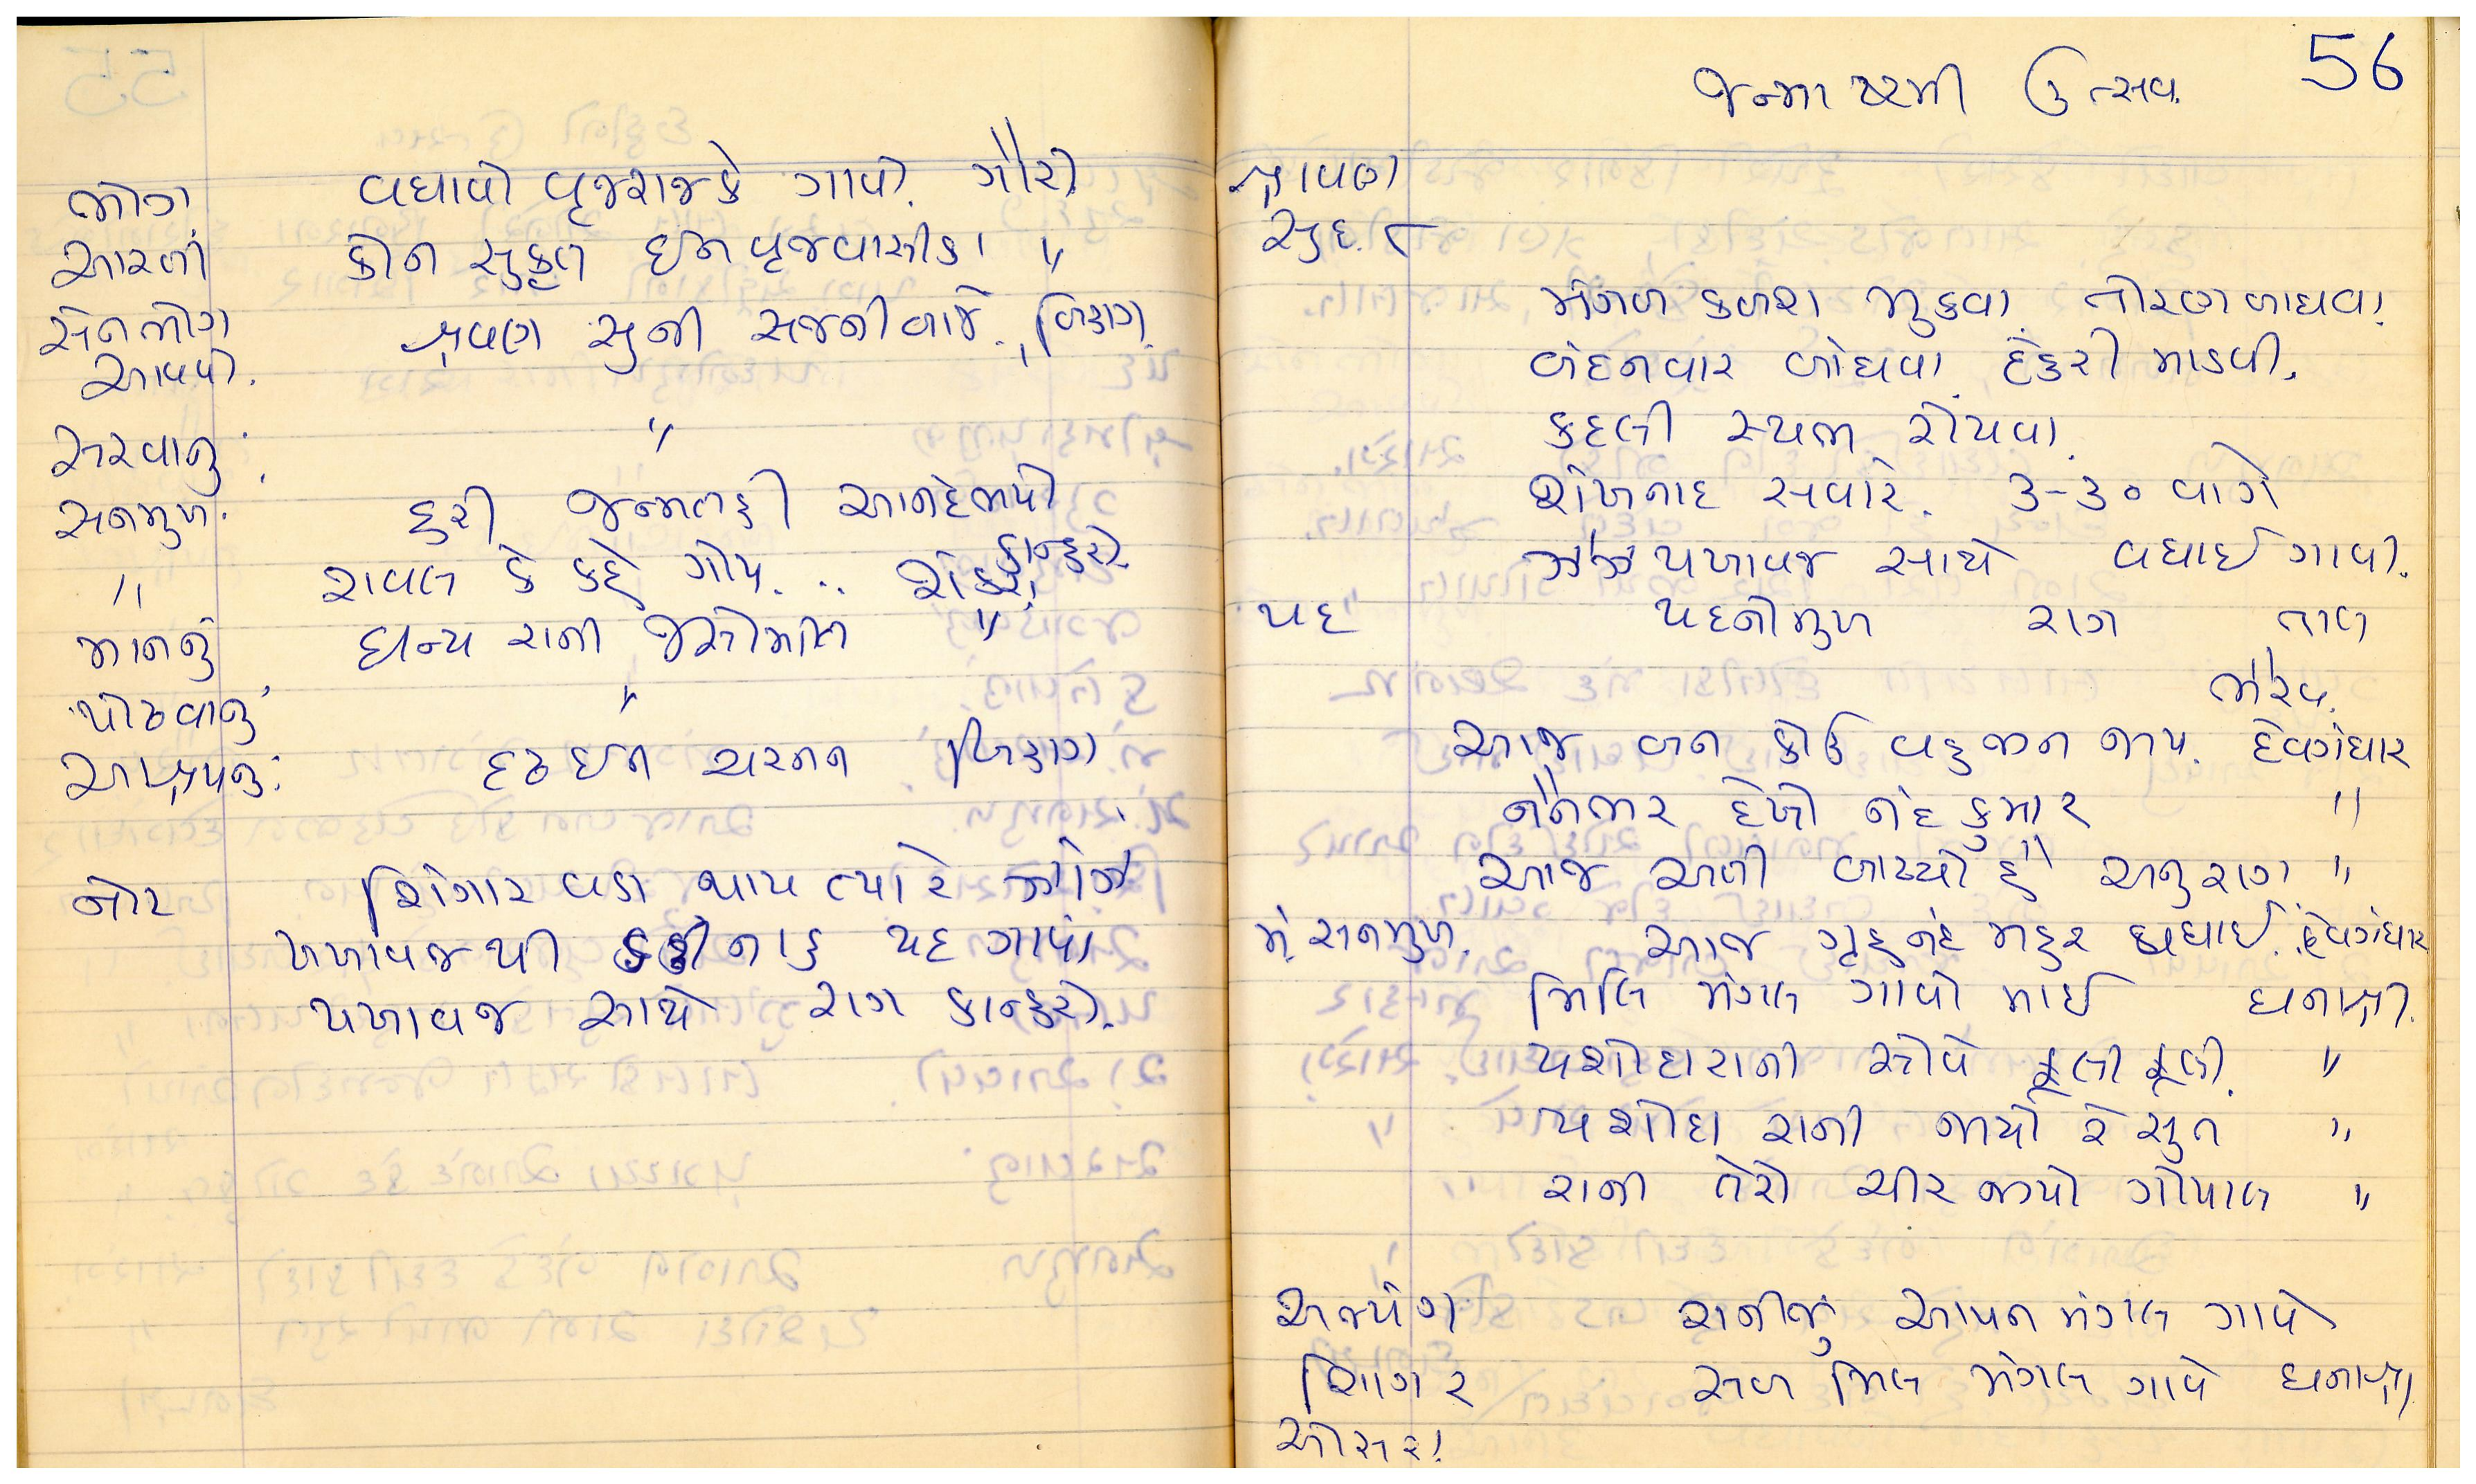 ભોગ વધાયો વૃજરાજકે ગાયો. ગૌરી
આરતી કોન સુકૃત ઈન વૃજવાસીકા "
સેનભોગ શ્રવણ સુની સજની બાજે. બિહાગ.
આવયો.
સરવાનુ "
સનમુખ. હરી જન્મતહી આનંદભયો કાન્હરો.
" રાવલ કે કહે ગોપ. ..
માનનું ધન્ય રાની જસોમતિ "
પોઢવાનુ "
આશ્રયનુ: દૃઢ ઈન ચરનન બિહાગ
નોટ શિંગાર વડા થાય ત્યારે ઝાંઝ
પખાવજથી પદ ગાવાં
પખાવજ સાથે રાગ કાન્હરો.
જન્માષ્ટમી ઉત્સવ. 56
શ્રાવણ
સુદ. ૮
મંગળ કળશ મુકવા. તોરણ બાધવા.
બંદનવાર બાંધવા. ઢેકરી માડવી.
કદલી સ્થભ રોપવા.
શંખનાદ સવારે. ૩-૩૦ વાગે
ઝાંઝ પખાવજ સાથે વધાઈ ગાવી.
પદ પદનીમુખ રાગ તાલ
ભૈરવ.
આજ બન કોઉ વહુજન જાય. દેવગંધાર
નૈનભર દેખો નંદ કુમાર "
આજ અતી બાઢ્યો હૈ અનુરાગ "
મં. સનમુખ. આજ ગૃહ નંદ મહર બધાઈ. દેવગંધાર
મિલિ મંગલ ગાવો માઈ ધનાશ્રી.
યશોદારાની સોવે ફૂલી ફૂલી. "
યશોદા રાની જાયો રે સુત "
રાની તેરો ચીર જીયો ગોપાલ "
અભ્યંગ રાનીજુ આપન મંગલ ગાવે
શિંગાર સબ મિલ મંગલ ગાવે ધનાશ્રી
ઓસરા